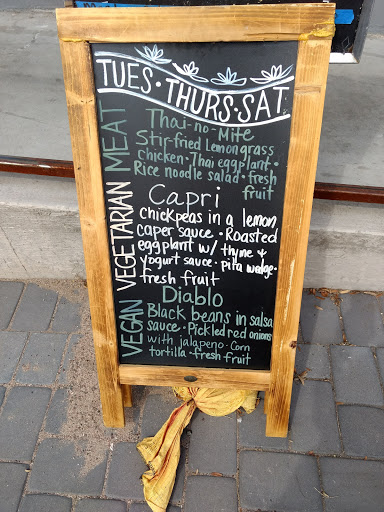 TUES • THURS • SAT
MEAT
Thai-no-Mite
Stir-fried Lemongrass
chicken • Thai eggplant •
Rice noodle salad • fresh
fruit
VEGETARIAN
Capri
chickpeas in a lemon
caper sauce • Roasted
eggplant w/ thyme &
yogurt sauce • pita wedge •
fresh fruit
VEGAN
Diablo
Black beans in salsa
sauce • Pickled red onions
with jalapeno • Corn
tortilla • fresh fruit